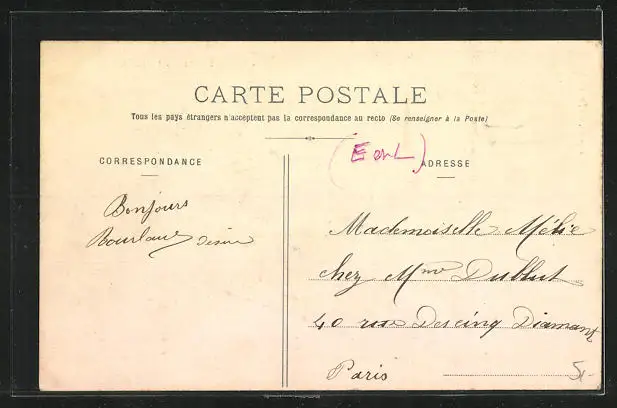 CARTE POSTALE
Tous les pays étrangers n'acceptent pas la correspondance au recto (Se renseigner à la Poste)
CORRESPONDANCE
ADRESSE
Bonjours
Mademoiselle Mélie
chez Mme Dublut
40 rue Des cinq Diamant
Paris